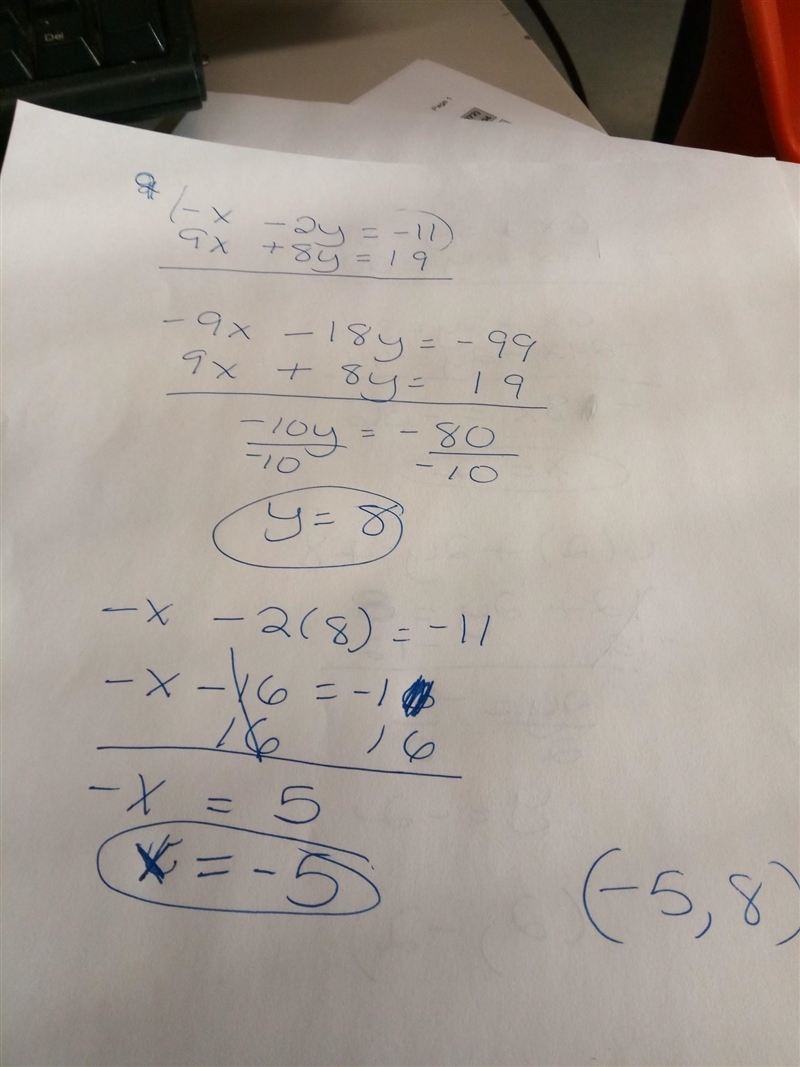 Del
Page 1
9(-x - 2y = -11)
9x + 8y = 19
-9x - 18y = -99
9x + 8y = 19
-10y = -80
-10 -10
y = 8
-x - 2(8) = -11
-x - 16 = -1
16 16
-x = 5
x = -5
(-5, 8)